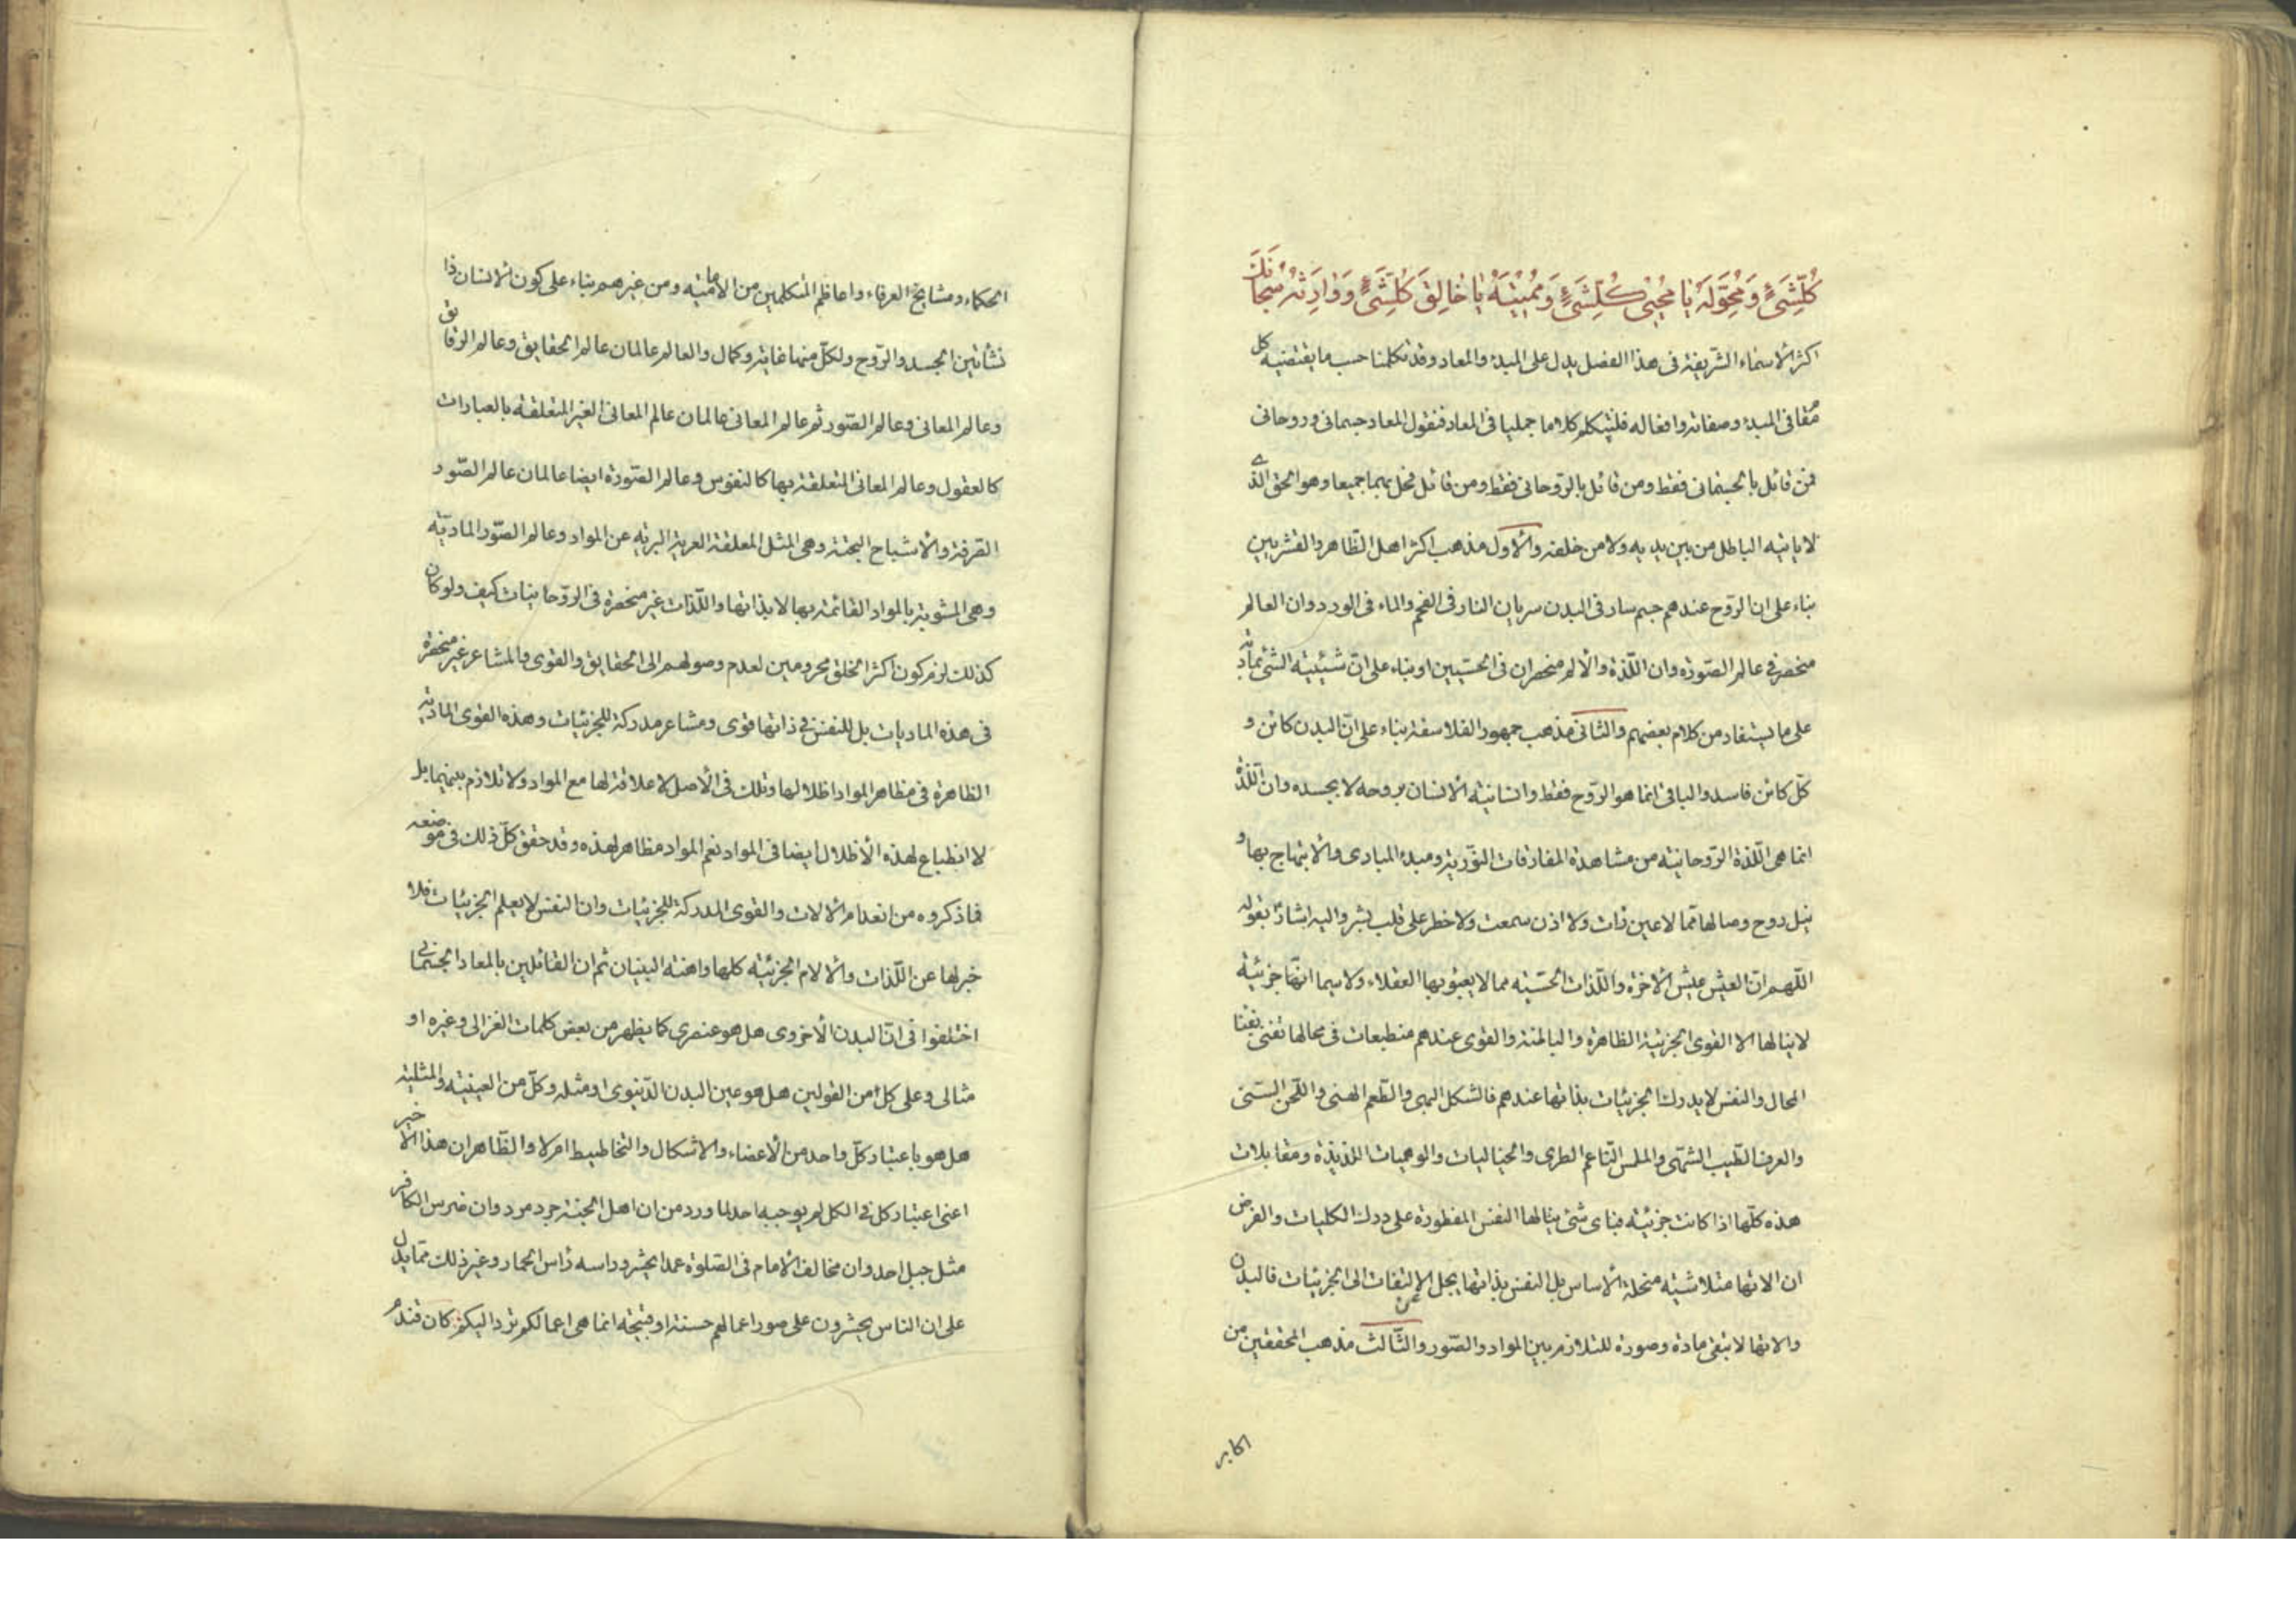 كُلِّشَىْءٍ وَمُحَوِّلَهُ يَا مُحْيِىَ كُلِّشَىْءٍ وَمُمِيْتَهُ يَا خَالِقَ كُلِّشَىْءٍ وَوَارِثَهُ سُبْحَانَكَ
اكثر الاسماء الشّريفة فى هذا الفصل يدل على المبدء والمعاد وقد تكلمنا حسب ما يقتضيه كل
مقام فى المبدء وصفاته وافعاله فلنتكلم كلاما جمليا فى المعاد فنقول المعاد جسمانى وروحانى
فمن قائل بالجسمانى فقط ومن قائل بالرّوحانى فقط ومن قائل بهما جميعا وهو الحق الذى
لا ياتيه الباطل من بين يديه ولا من خلفه والاول مذهب اكثر اهل الظّاهر والقشريين
بناء على ان الرّوح عندهم جسم سار فى البدن سريان النار فى الفحم والماء فى الورد وان العالم
منحصر فى عالم الصّورة وان اللّذة والالم منحصران فى الحسّيين او بناء على انّ شيئيّة الشئ بمادّته
على ما يستفاد من كلام بعضهم والثانى مذهب جمهور الفلاسفة بناء على انّ البدن كائن و
كلّ كائن فاسد والباقى انما هو الرّوح فقط وانسانيّة الانسان بروحه لا بجسده وان اللّذة
انما هى اللّذة الرّوحانيّة من مشاهدة المفارقات النّوريّة ومبدء المبادى والابتهاج بها و
نيل روح وصالها ممّا لا عين رأت ولا اذن سمعت ولا خطر على قلب بشر واليه اشار بقوله
اللّهم انّ العيش عيش الاخرة واللّذات الحسّيّة مما لا يعبؤ بها العقلاء ولا سيما انّها جزئيّة
لا ينالها الا القوى الجزئيّة الظاهرة والباطنة والقوى عندهم منطبعات فى محالها تفنى بفناء
المحال والنفس لا يدرك الجزئيات بذاتها عندهم فالشكل البهى والطّعم الهنى واللّحن السنى
والعرف الطّيب الشهّى والملمس النّاعم الطرى والخياليات والوهميات اللذيذة ومقابلات
هذه كلّها اذا كانت جزئيّة فباى شئ ينالها النفس المفطورة على درك الكليات والفرض
ان الاتها متلاشية منحلة الاساس بل النفس بذاتها يجل عن الالتفات الى الجزئيات فالبدن
والاتها لا تبقى مادة وصورة للتلازم بين المواد والصّور والثّالث مذهب المحققين من
اكابر
الحكماء ومشايخ العرفاء واعاظم المتكلمين من الامامية ومن غيرهم بناء على كون الانسان ذا
نشأتين الجسد والرّوح ولكلّ منهما غاية وكمال والعالم عالمان عالم الحقايق وعالم الرقايق
وعالم المعانى وعالم الصّور ثم عالم المعانى عالمان عالم المعانى الغير المتعلقة بالعبارات
كالعقول وعالم المعانى المتعلقة بها كالنفوس وعالم الصّورة ايضا عالمان عالم الصّور
الصّرفة والاشباح البحتة وهى المثل المعلقة العرية البرية عن المواد وعالم الصّور الماديّة
وهى المشوبة بالمواد القائمة بها لا بذاتها واللّذات غير منحصرة فى الرّوحانيات كيف ولو كان
كذلك لزم كون اكثر الخلق محرومين لعدم وصولهم الى الحقايق والقوى والمشاعر غير منحصرة
فى هذه الماديات بل للنفس فى ذاتها قوى ومشاعر مدركة للجزئيات وهذه القوى الماديّة
الظاهرة فى مظاهر المواد اظلال لها وتلك فى الاصل لا علاقة لها مع المواد ولا تلازم بينهما بل
لا انطباع لهذه الاظلال ايضا فى المواد نعم المواد مظاهر لهذه وقد حقق كلّ ذلك فى موضعه
فما ذكروه من انعدام الالات والقوى المدركة للجزئيات وان النفس لا يعلم الجزئيات فلا
خبر لها عن اللّذات والالام الجزئيّة كلها واهنة البنيان ثم ان القائلين بالمعاد الجسمانى
اختلفوا فى انّ البدن الاخروى هل هو عنصرى كما يظهر من بعض كلمات الغزالى وغيره او
مثالى وعلى كل من القولين هل هو عين البدن الدّنيوى او مثله وكلّ من العينيّة والمثليّة
هل هو باعتبار كلّ واحد من الاعضاء والاشكال والتخاطيط ام لا والظّاهر ان هذا الاخير
اعنى اعتبار كل فى الكل لم يوجبه احد لما ورد من ان اهل الجنة جرد مرد وان ضرس الكافر
مثل جبل احد وان مخالف الامام فى الصّلوة عمدا يحشر وراسه رأس الحمار وغير ذلك ممّا يدل
على ان الناس يحشرون على صور اعمالهم حسنة او قبيحة انما هى اعمالكم ترد اليكم كان قندم